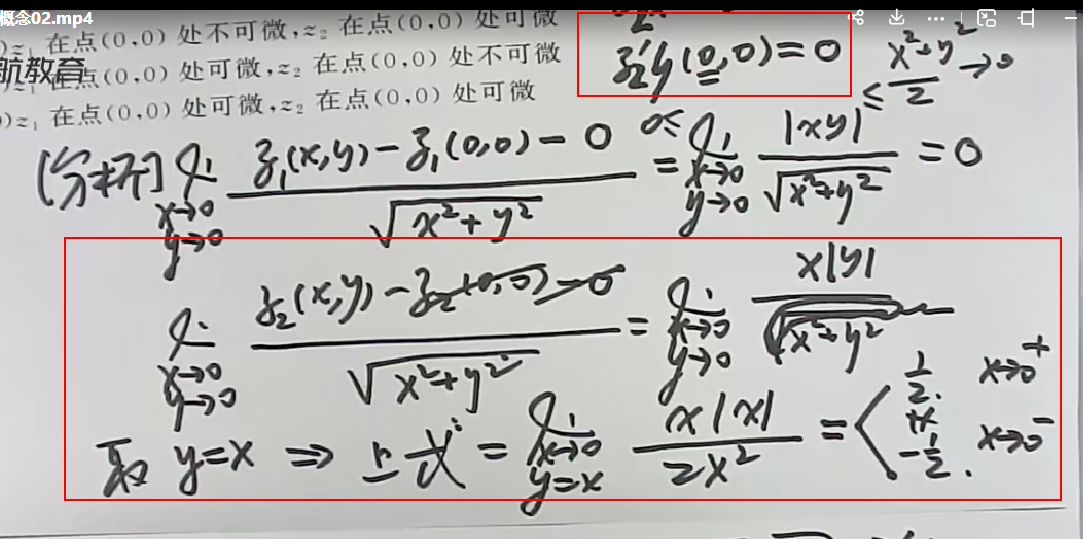 概念02.mp4
)z₁ 在点(0,0) 处不可微,z₂ 在点(0,0) 处可微
航教育
)z₁ 在点(0,0) 处可微,z₂ 在点(0,0) 处不可微
)z₁ 在点(0,0) 处可微,z₂ 在点(0,0) 处可微
z₂'y(0,0)=0
0≤ ≤ (x²+y²)/2 →0
[分析] lim x→0 y→0 (z₁(x,y)-z₁(0,0)-0)/√(x²+y²) = lim x→0 y→0 |xy|/√(x²+y²) = 0
lim x→0 y→0 (z₂(x,y)-z₂(0,0)-0)/√(x²+y²) = lim x→0 y→0 x|y|/(x²+y²)
取 y=x ⇒ 上式 = lim x→0 y=x x|x|/2x² = { 1/2. x→0⁺
≠
-1/2. x→0⁻